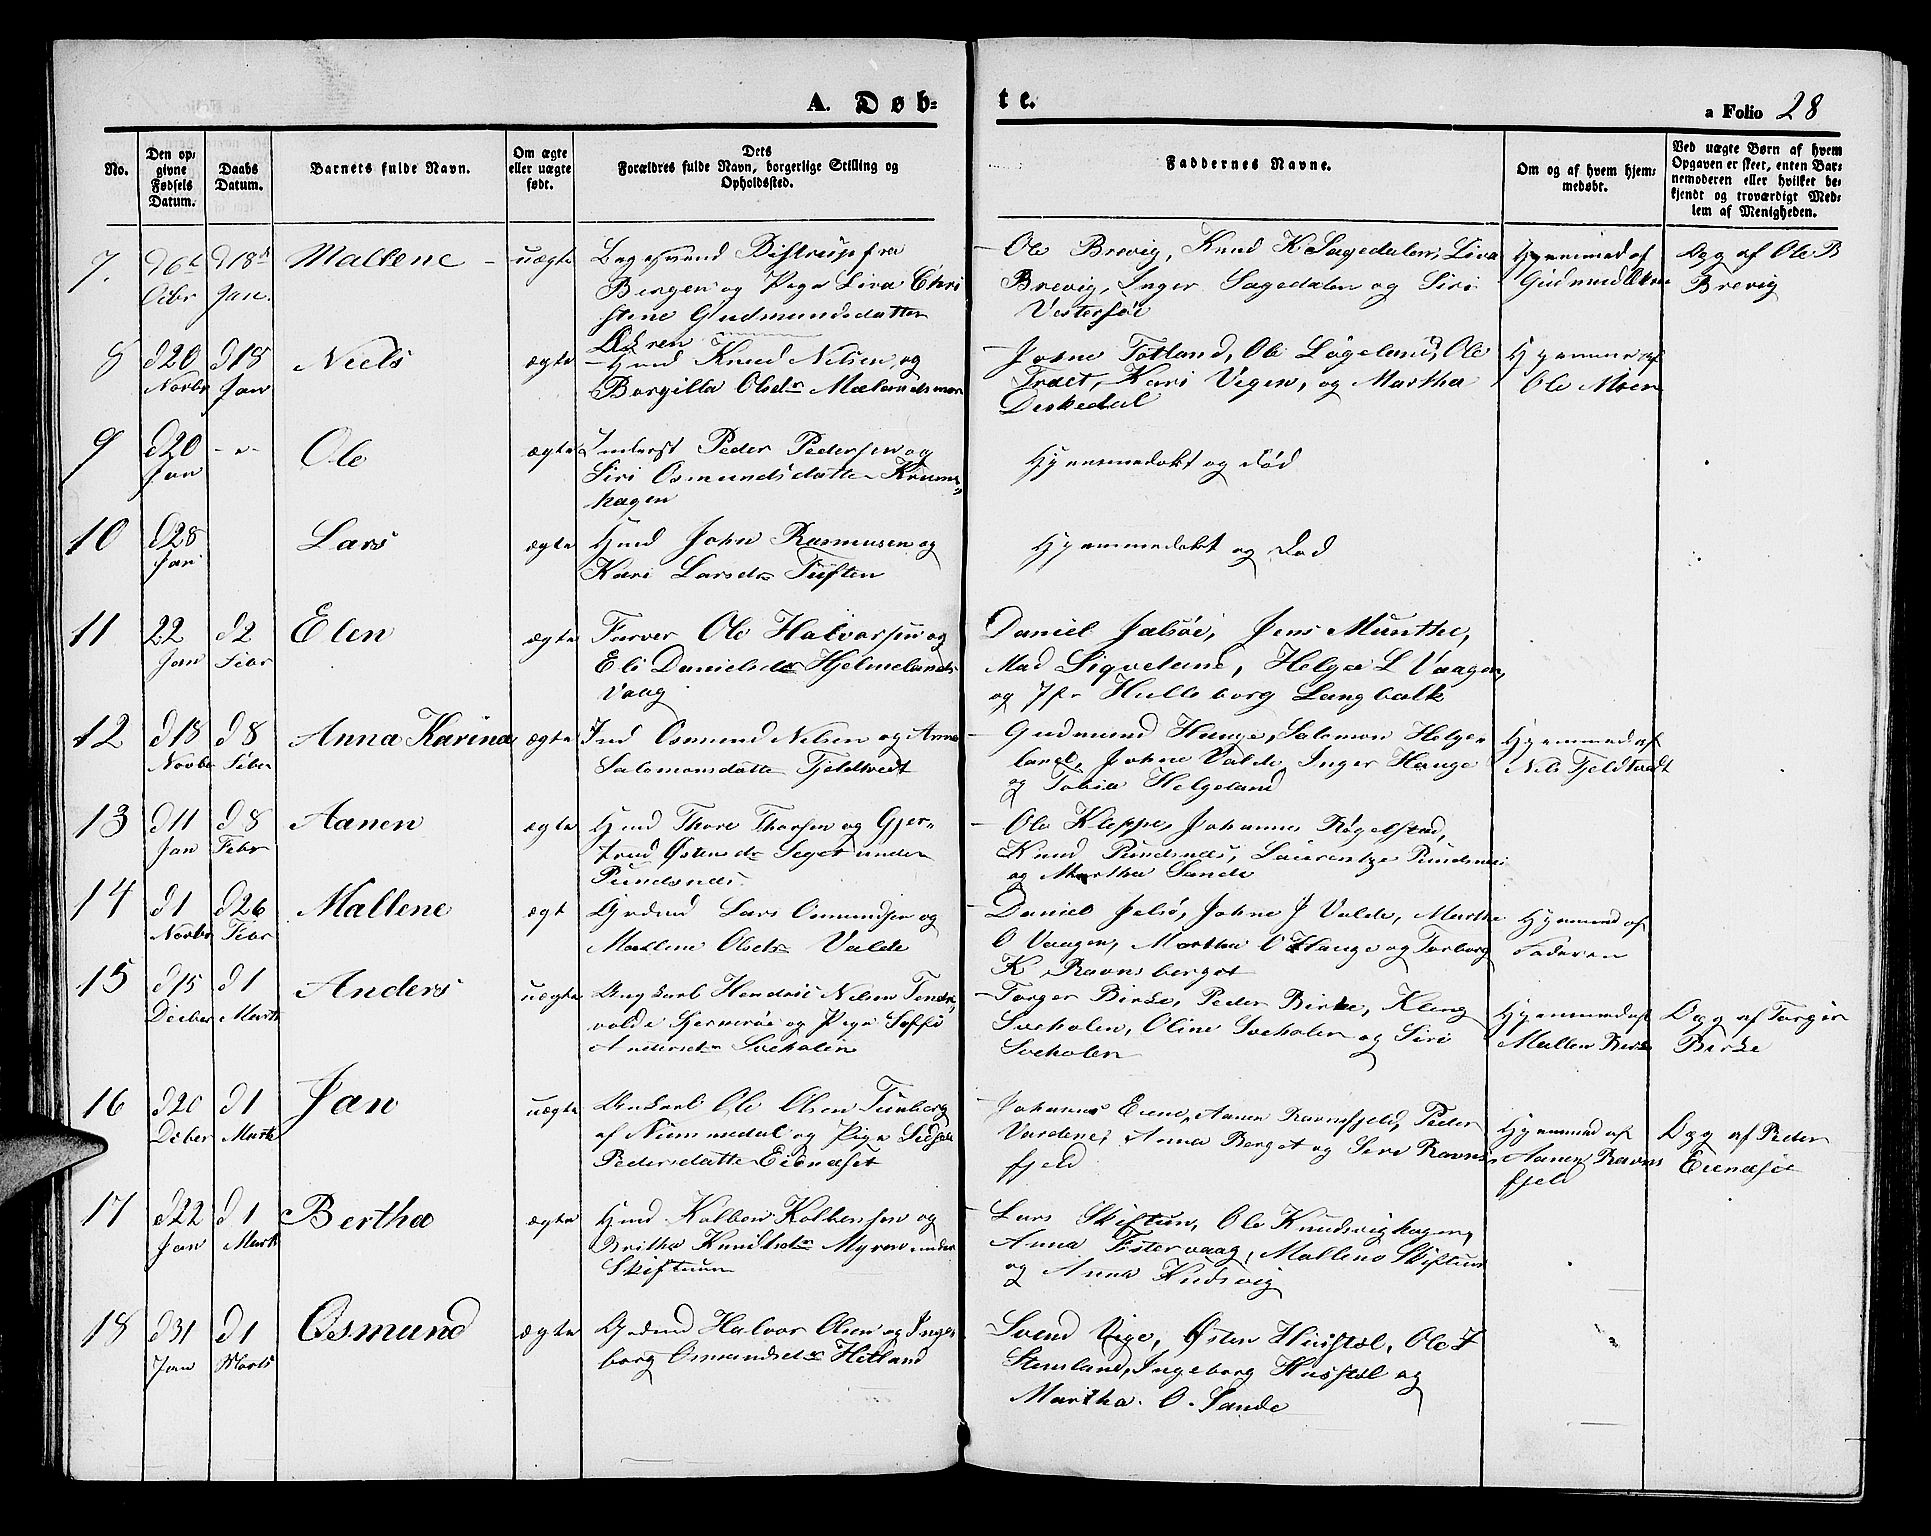 A. Døb-
te.
a Folio 28
No.
Den op-
givne
Fødsels
Datum.
Daabs
Datum.
Barnets fulde Navn.
Om ægte
eller uægte
født.
Dets
Forældres fulde Navn, borgerlige Stilling og
Opholdssted.
Faddernes Navne.
Om og af hvem hjem-
medøbt.
Ved uægte Børn af hvem
Opgaven er skeet, enten Bar-
nemoderen eller hvilket be-
kjendt og troværdigt Med-
lem af Menigheden.
7.
Octbr
d18d
Jan.
Mallene
uægte
Bistrup fra
Bergen og Pige Siva Chri
stine Gudmundsdatter
Ole Brevig, Knud K Sagedalen, Siva
Brevig, Inger Sagedalen og Siri
Hjemmed af
Gudmund
Opg af Ole B
Brevig
8
d20
Novbr
d18
Jan
Niels
ægte
Hmd Knud Nilsen og
Borgilla Olsdr Mælandsmoen
Johne Totland, Ole Løgeland, Ole
Træet, Kari Vegen, og Martha
Deskedal
Hjemme af
Ole Moen
9
d20
Jan
-"-
Ole
ægte
Inderst Peder Pedersen og
Siri Osmundsdatter Krume-
hagen
Hjemmedøbt og død
10
d28
Jan
Lars
ægte
Hmd John Rasmusen og
Kari Larsdr Tuften
Hjemmedøbt og død
11
22
Jan
d2
Febr
Elen
ægte
Farver Ole Halvorsen og
Eli Danielsdr Hjelmelands
Vaag
Daniel Jelsøe, Jens Munthe,
Mad Siqveland, Helga L Vaagen,
og Jfr Hulleborg Langballe
12
d18
Novbr
d8
Feber
Anna Karina
ægte
Ind Osmund Nilsen og Anna
Salomonsdatter Fjeldtvedt
Gudmund Hauge, Salomon Helge
land, Johne Valde, Inger Hauge
og Tobia Helgeland
Hjemmed af
Nils Fjeldtvedt
13
d11
Jan
d8
Febr
Aanen
ægte
Hmd Thore Thorsen og Gjer-
trud Østensdr Seget under
Pundsnæs.
Ole Kleppe, Johannes Røgelstad,
Knud Pundsnæs, Laurentze Pundsnæs
og Martha Sande
14
d1
Novbr
d26
Febr
Mallene
ægt
Grdmd Lars Osmundsen og
Mallene Olsdr Valde
Daniel Jelsø, Johne J Valde, Martha
O Vaagen, Martha O Hauge og Torborg
K Ravnsberget
Hjemmed af
Faderen
15
d15
Deber
d1
Marts
Anders
uægte
Ungkarl Hendric Nilsen Tendre
volde Hjernerøe og Pige Soffi
Andersdr Sveholen
Torger Birke, Peder Birke, Kleng
Sveholen, Oline Sveholen og Siri
Sveholen
Hjemmed af
Mallen Birke
Opg af Torger
Birke
16
d20
Deber
d1
Marts
Jan
uægte
Ungkarl Ole Olsen Tunberg
af Nummedal og Pige Sidsele
Pedersdatter Eiendset
Johannes Eiene, Aanen Ravnsfjeld, Peder
Vardene, Anna Berget og Seri Ravns
fjeld
Hjemmed af
Aanen Ravns
fjeld
Opg af Peder
Eiendset
17
d22
Jan
d1
Marts
Bertha
ægte
Hmd Kolben Kolbensen og
Britha Knudsdr Myren under
Skiftuun
Lars Skiftun, Ole Knudsvighagen,
Anna Fistervaag, Mallene Skiftun
og Anna Knudsvig
18
d31
Jan
d1
Marts
Osmund
ægte
Grdmd Halvor Olsen og Inge
borg Osmundsdr Hetland
Svend Vige, Østen Husstøl, Ole T
Stensland, Ingeborg Husstøl og
Martha. O. Sande